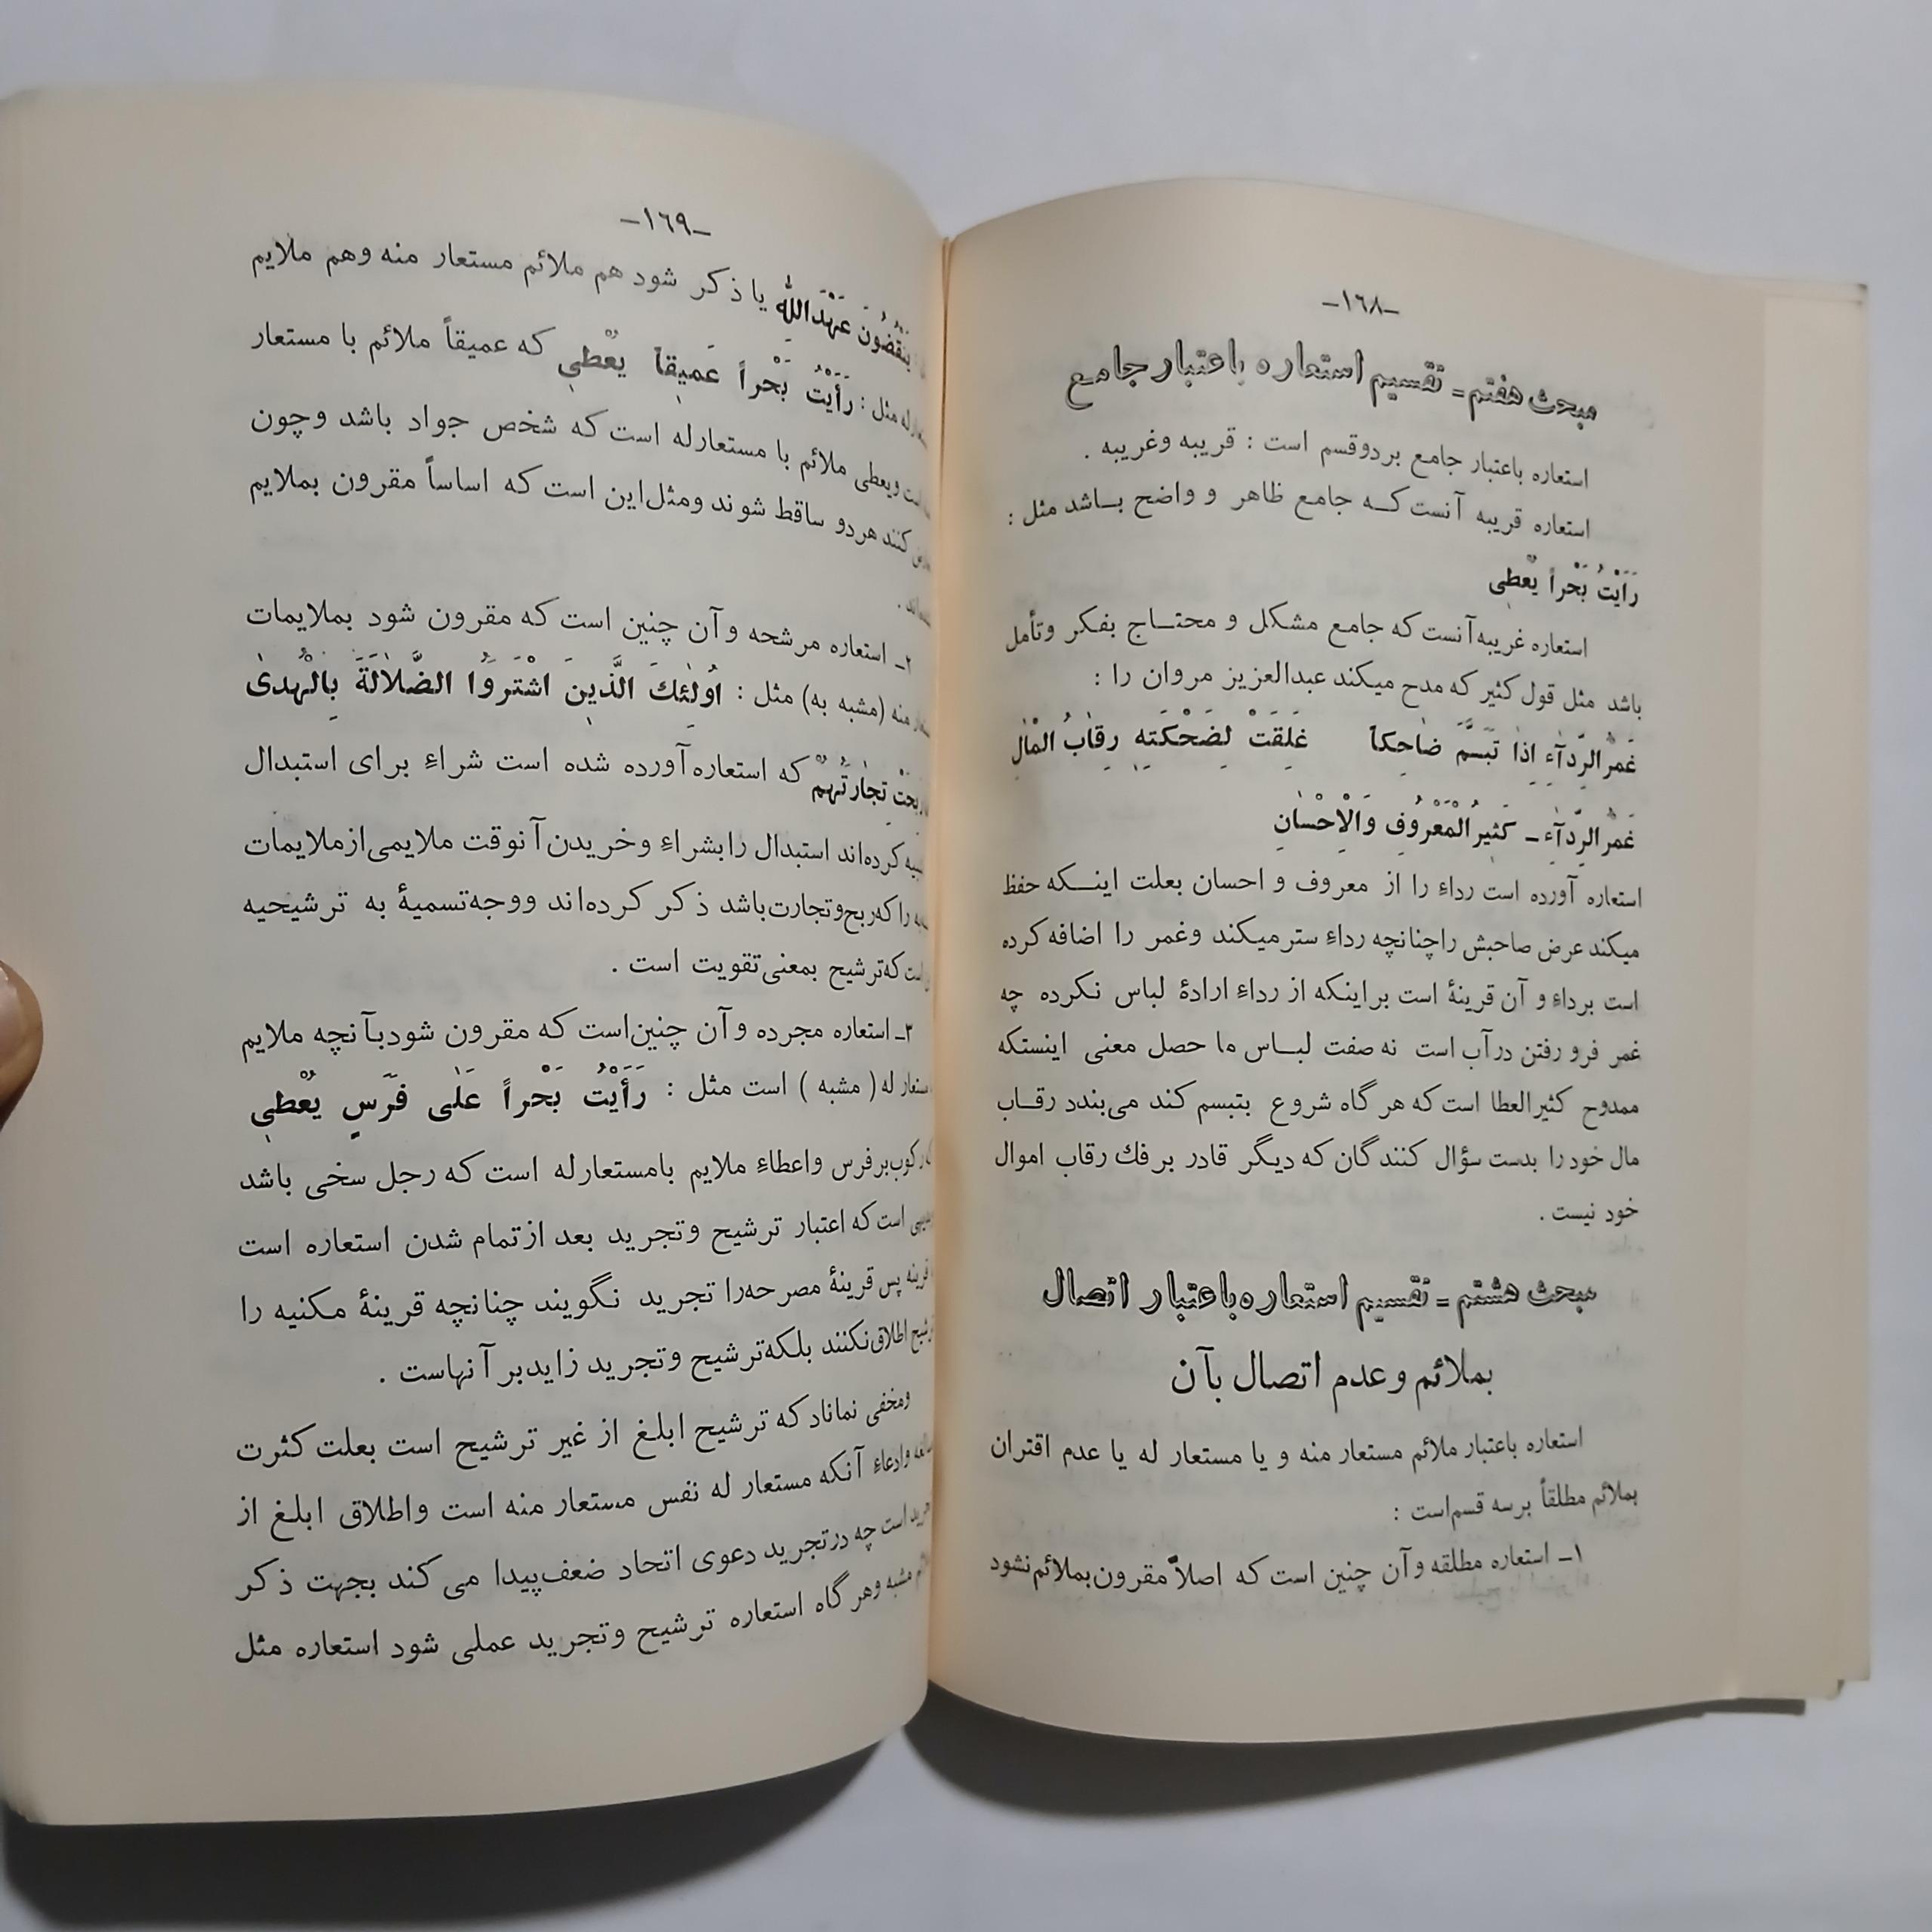 -١٦٨-
مبحث هفتم ـ تقسیم استعاره باعتبار جامع
استعاره باعتبار جامع بردوقسم است : قریبه وغریبه .
استعاره قریبه آنست کـه جامع ظاهر و واضح بـاشد مثل :
رَأَیْتُ بَحْراً یُعْطِی
استعاره غریبه آنست که جامع مشکل و محتـاج بفکر وتأمل
باشد مثل قول کثیر که مدح میکند عبدالعزیز مروان را :
غَمْرُ الرِّدآءِ اِذٰا تَبَسَّمَ ضٰاحِکاً غَلِقَتْ لِضَحْکَتِهِ رِقٰابُ الْمٰالِ
غَمْرُ الرِّدآءِ ـ کَثِیرُ الْمَعْرُوفِ وَالْاِحْسٰانِ
استعاره آورده است رداء را از معروف و احسان بعلت اینـکه حفظ
میکند عرض صاحبش راچنانچه رداء سترمیکند وغمر را اضافه کرده
است برداء و آن قرینهٔ است براینکه از رداء ارادهٔ لباس نکرده چه
غمر فرو رفتن درآب است نه صفت لبـاس ما حصل معنی اینستکه
ممدوح کثیرالعطا است که هر گاه شروع بتبسم کند می‌بندد رقـاب
مال خود را بدست سؤال کنندگان که دیگر قادر بر فك رقاب اموال
خود نیست .
مبحث هشتم ـ تقسیم استعاره باعتبار اتصال
بملائم وعدم اتصال بآن
استعاره باعتبار ملائم مستعار منه و یا مستعار له یا عدم اقتران
بملائم مطلقاً برسه قسم‌است :
۱ـ استعاره مطلقه وآن چنین است که اصلاً مقرون‌بملائم‌نشود
-١٦٩-
یَنْقُضُونَ عَهْدَاللهِ یا ذکر شود هم ملائم مستعار منه وهم ملایم
له مثل : رَأَیْتُ بَحْراً عَمِیقاً یُعْطِی که عمیقاً ملائم با مستعار
ویعطی ملائم با مستعارله است که شخص جواد باشد وچون
کنند هردو ساقط شوند ومثل‌این است که اساساً مقرون بملایم
۲ـ استعاره مرشحه وآن چنین است که مقرون شود بملایمات
منه (مشبه به) مثل : اُولٰئِكَ الَّذِینَ اشْتَرَوُا الضَّلاٰلَةَ بِالْهُدیٰ
رَبِحَتْ تِجٰارَتُهُمْ که استعاره آورده شده است شراء برای استبدال
کرده‌اند استبدال را بشراء وخریدن آنوقت ملایمی‌ازملایمات
را که‌ربح‌وتجارت‌باشد ذکر کرده‌اند ووجه‌تسمیهٔ به ترشیحیه
که‌ترشیح بمعنی‌تقویت است .
۳ـ استعاره مجرده وآن چنین‌است که مقرون شودبآنچه ملایم
مستعار له( مشبه ) است مثل : رَأَیْتُ بَحْراً عَلٰی فَرَسٍ یُعْطِی
رکوب‌برفرس واعطاء ملایم بامستعارله است که رجل سخی باشد
است که اعتبار ترشیح وتجرید بعد ازتمام شدن استعاره است
قرینه پس قرینهٔ مصرحه‌را تجرید نگویند چنانچه قرینهٔ مکنیه را
ترشیح اطلاق‌نکنند بلکه‌ترشیح وتجرید زایدبر آنهاست .
ومخفی نماناد که ترشیح ابلغ از غیر ترشیح است بعلت کثرت
وادعاء آنکه مستعار له نفس مستعار منه است واطلاق ابلغ از
تجرید است چه درتجرید دعوی اتحاد ضعف‌پیدا می کند بجهت ذکر
مشبه وهر گاه استعاره ترشیح وتجرید عملی شود استعاره مثل